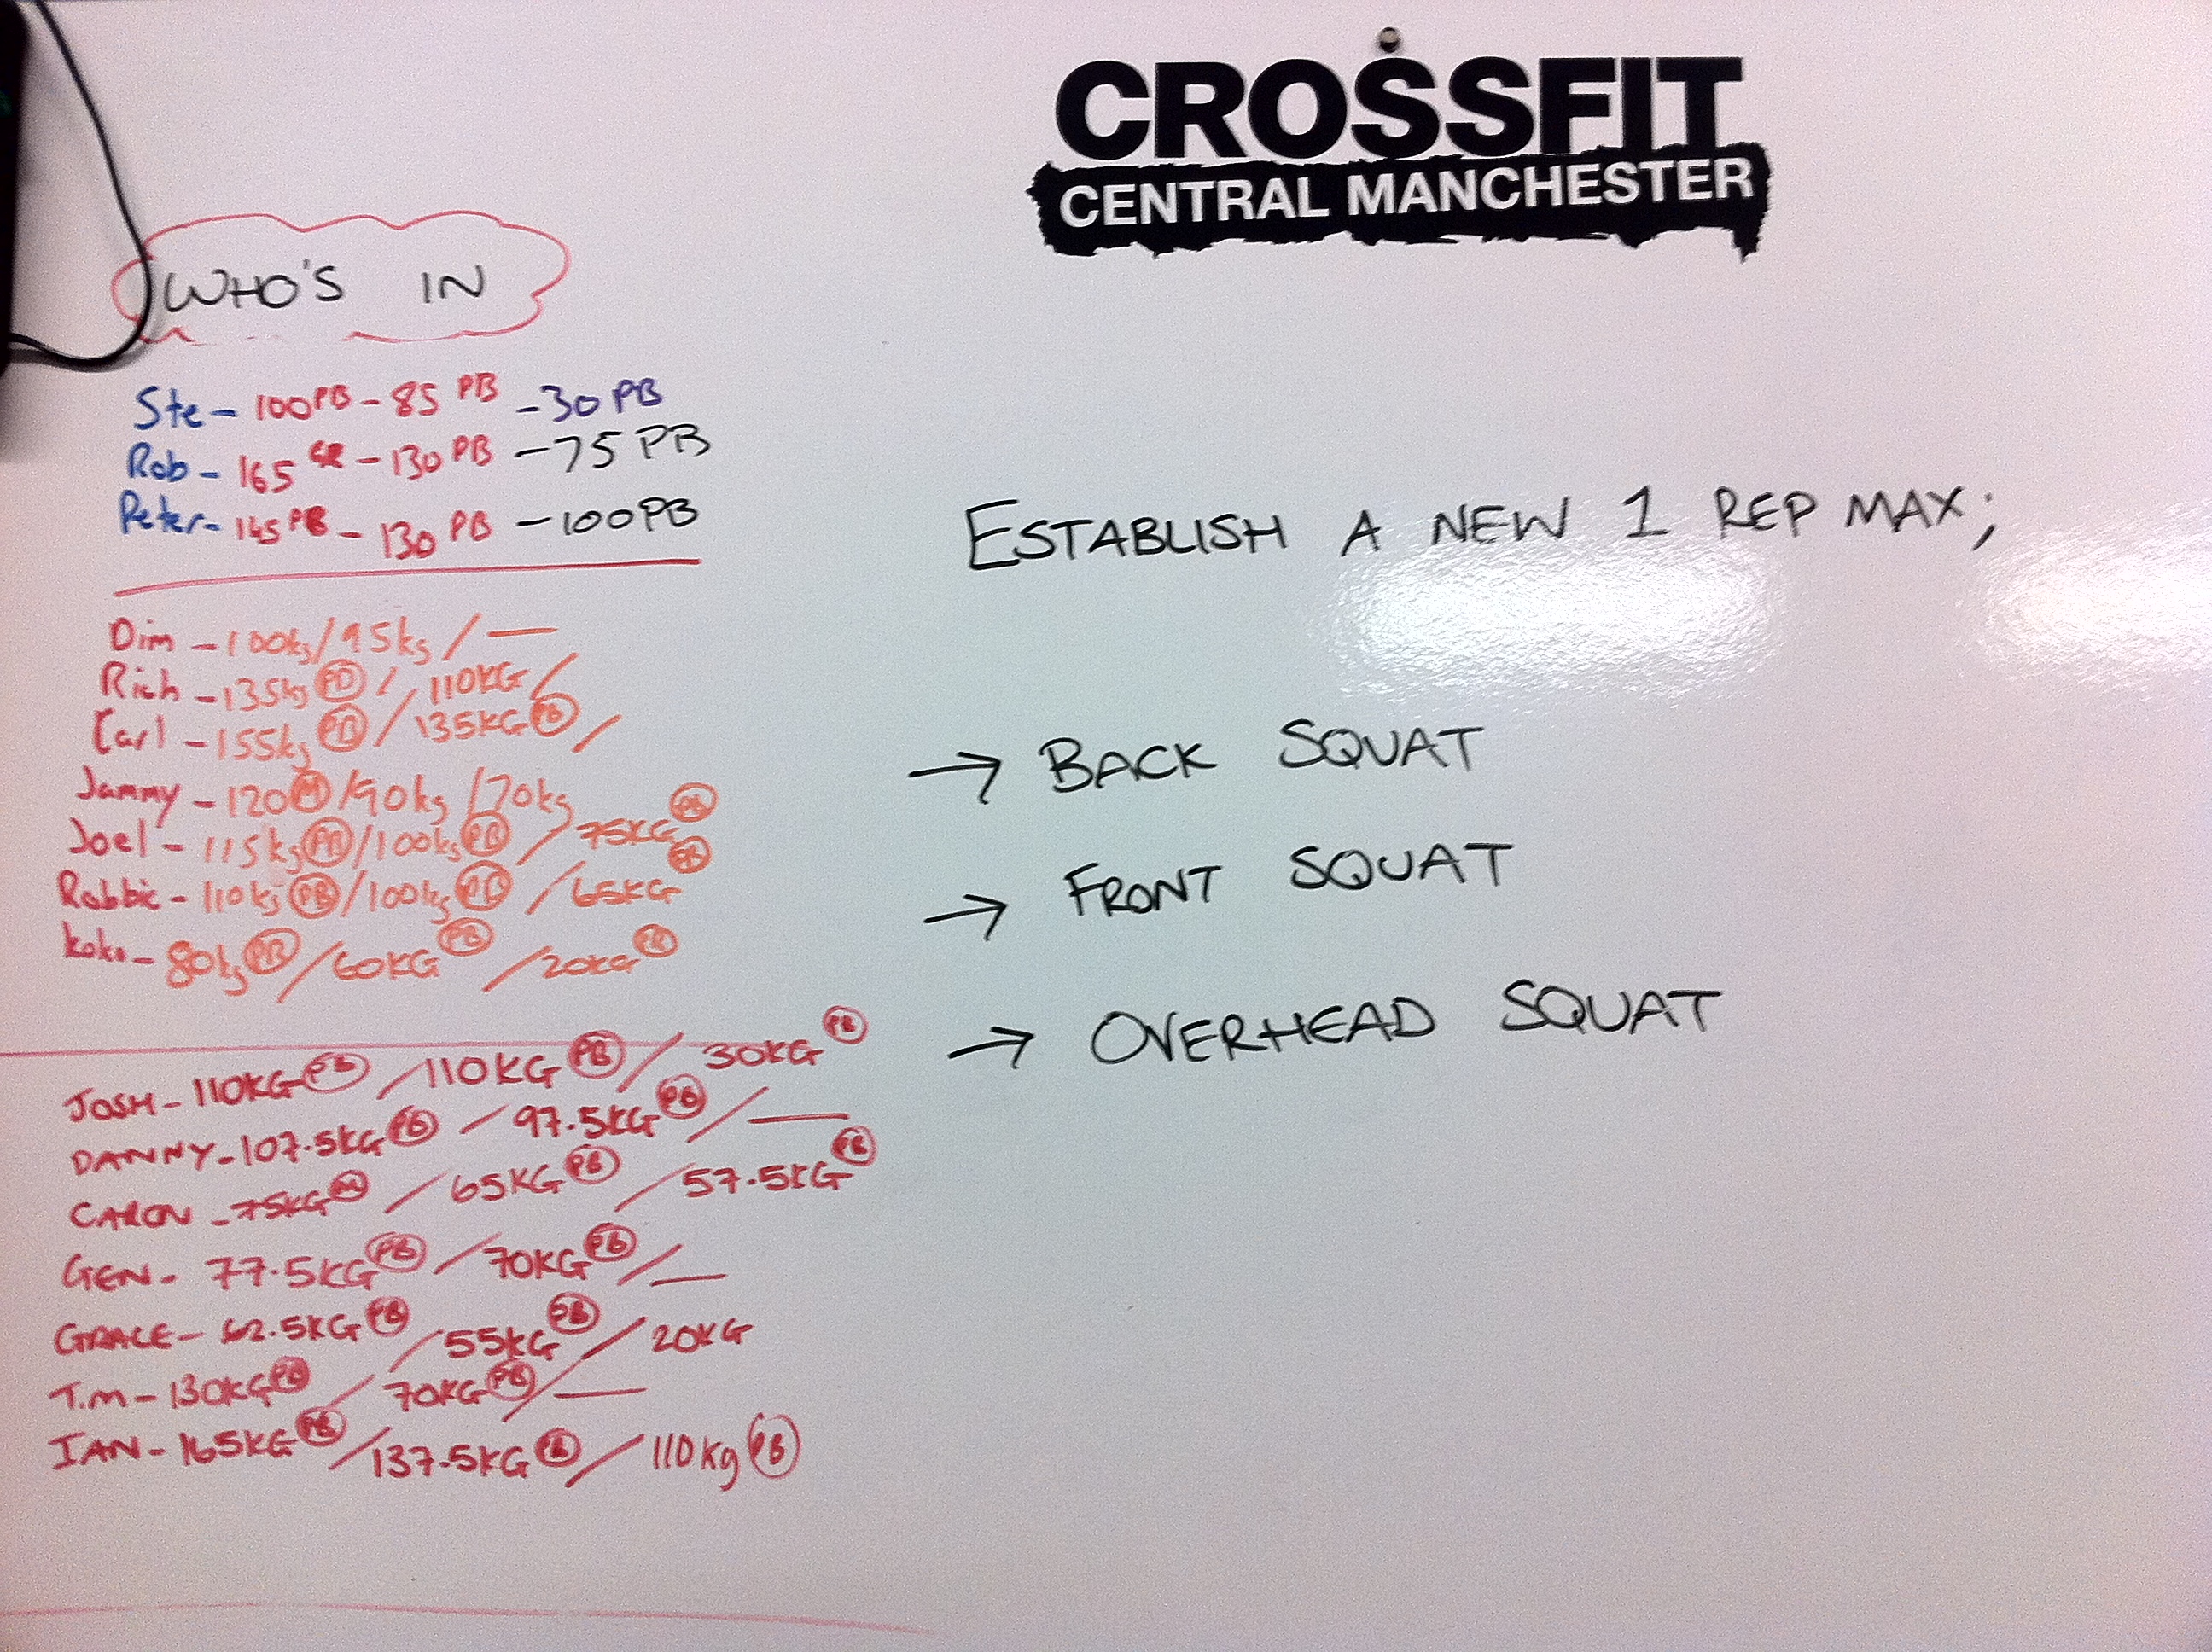 CROSSFIT
CENTRAL MANCHESTER
WHO'S IN
Ste - 100 PB - 85 PB - 30 PB
Rob - 165 - 130 PB - 75 PB
Peter - 145 PB - 130 PB - 100 PB
Dim - 100kg / 95kg / —
Rich - 135kg / 110KG /
Carl - 155kg PB / 135KG PB /
Jammy - 120 M / 90kg / 70kg
Joel - 115kg PB / 100kg PB / 75KG PB
Robbie - 110kg PB / 100kg PB / 65KG
Koko - 80kg PB / 60KG PB / 20KG PB
JOSH - 110KG PB / 110KG PB / 30KG PB
DANNY - 107.5KG PB / 97.5KG PB / —
CARON - 75KG / 65KG PB / 57.5KG PB
GEN - 77.5KG PB / 70KG PB / —
GRACE - 62.5KG PB / 55KG PB / 20KG
T.M - 130KG PB / 70KG PB / —
IAN - 165KG PB / 137.5KG PB / 110Kg PB
ESTABLISH A NEW 1 REP MAX;
→ BACK SQUAT
→ FRONT SQUAT
→ OVERHEAD SQUAT